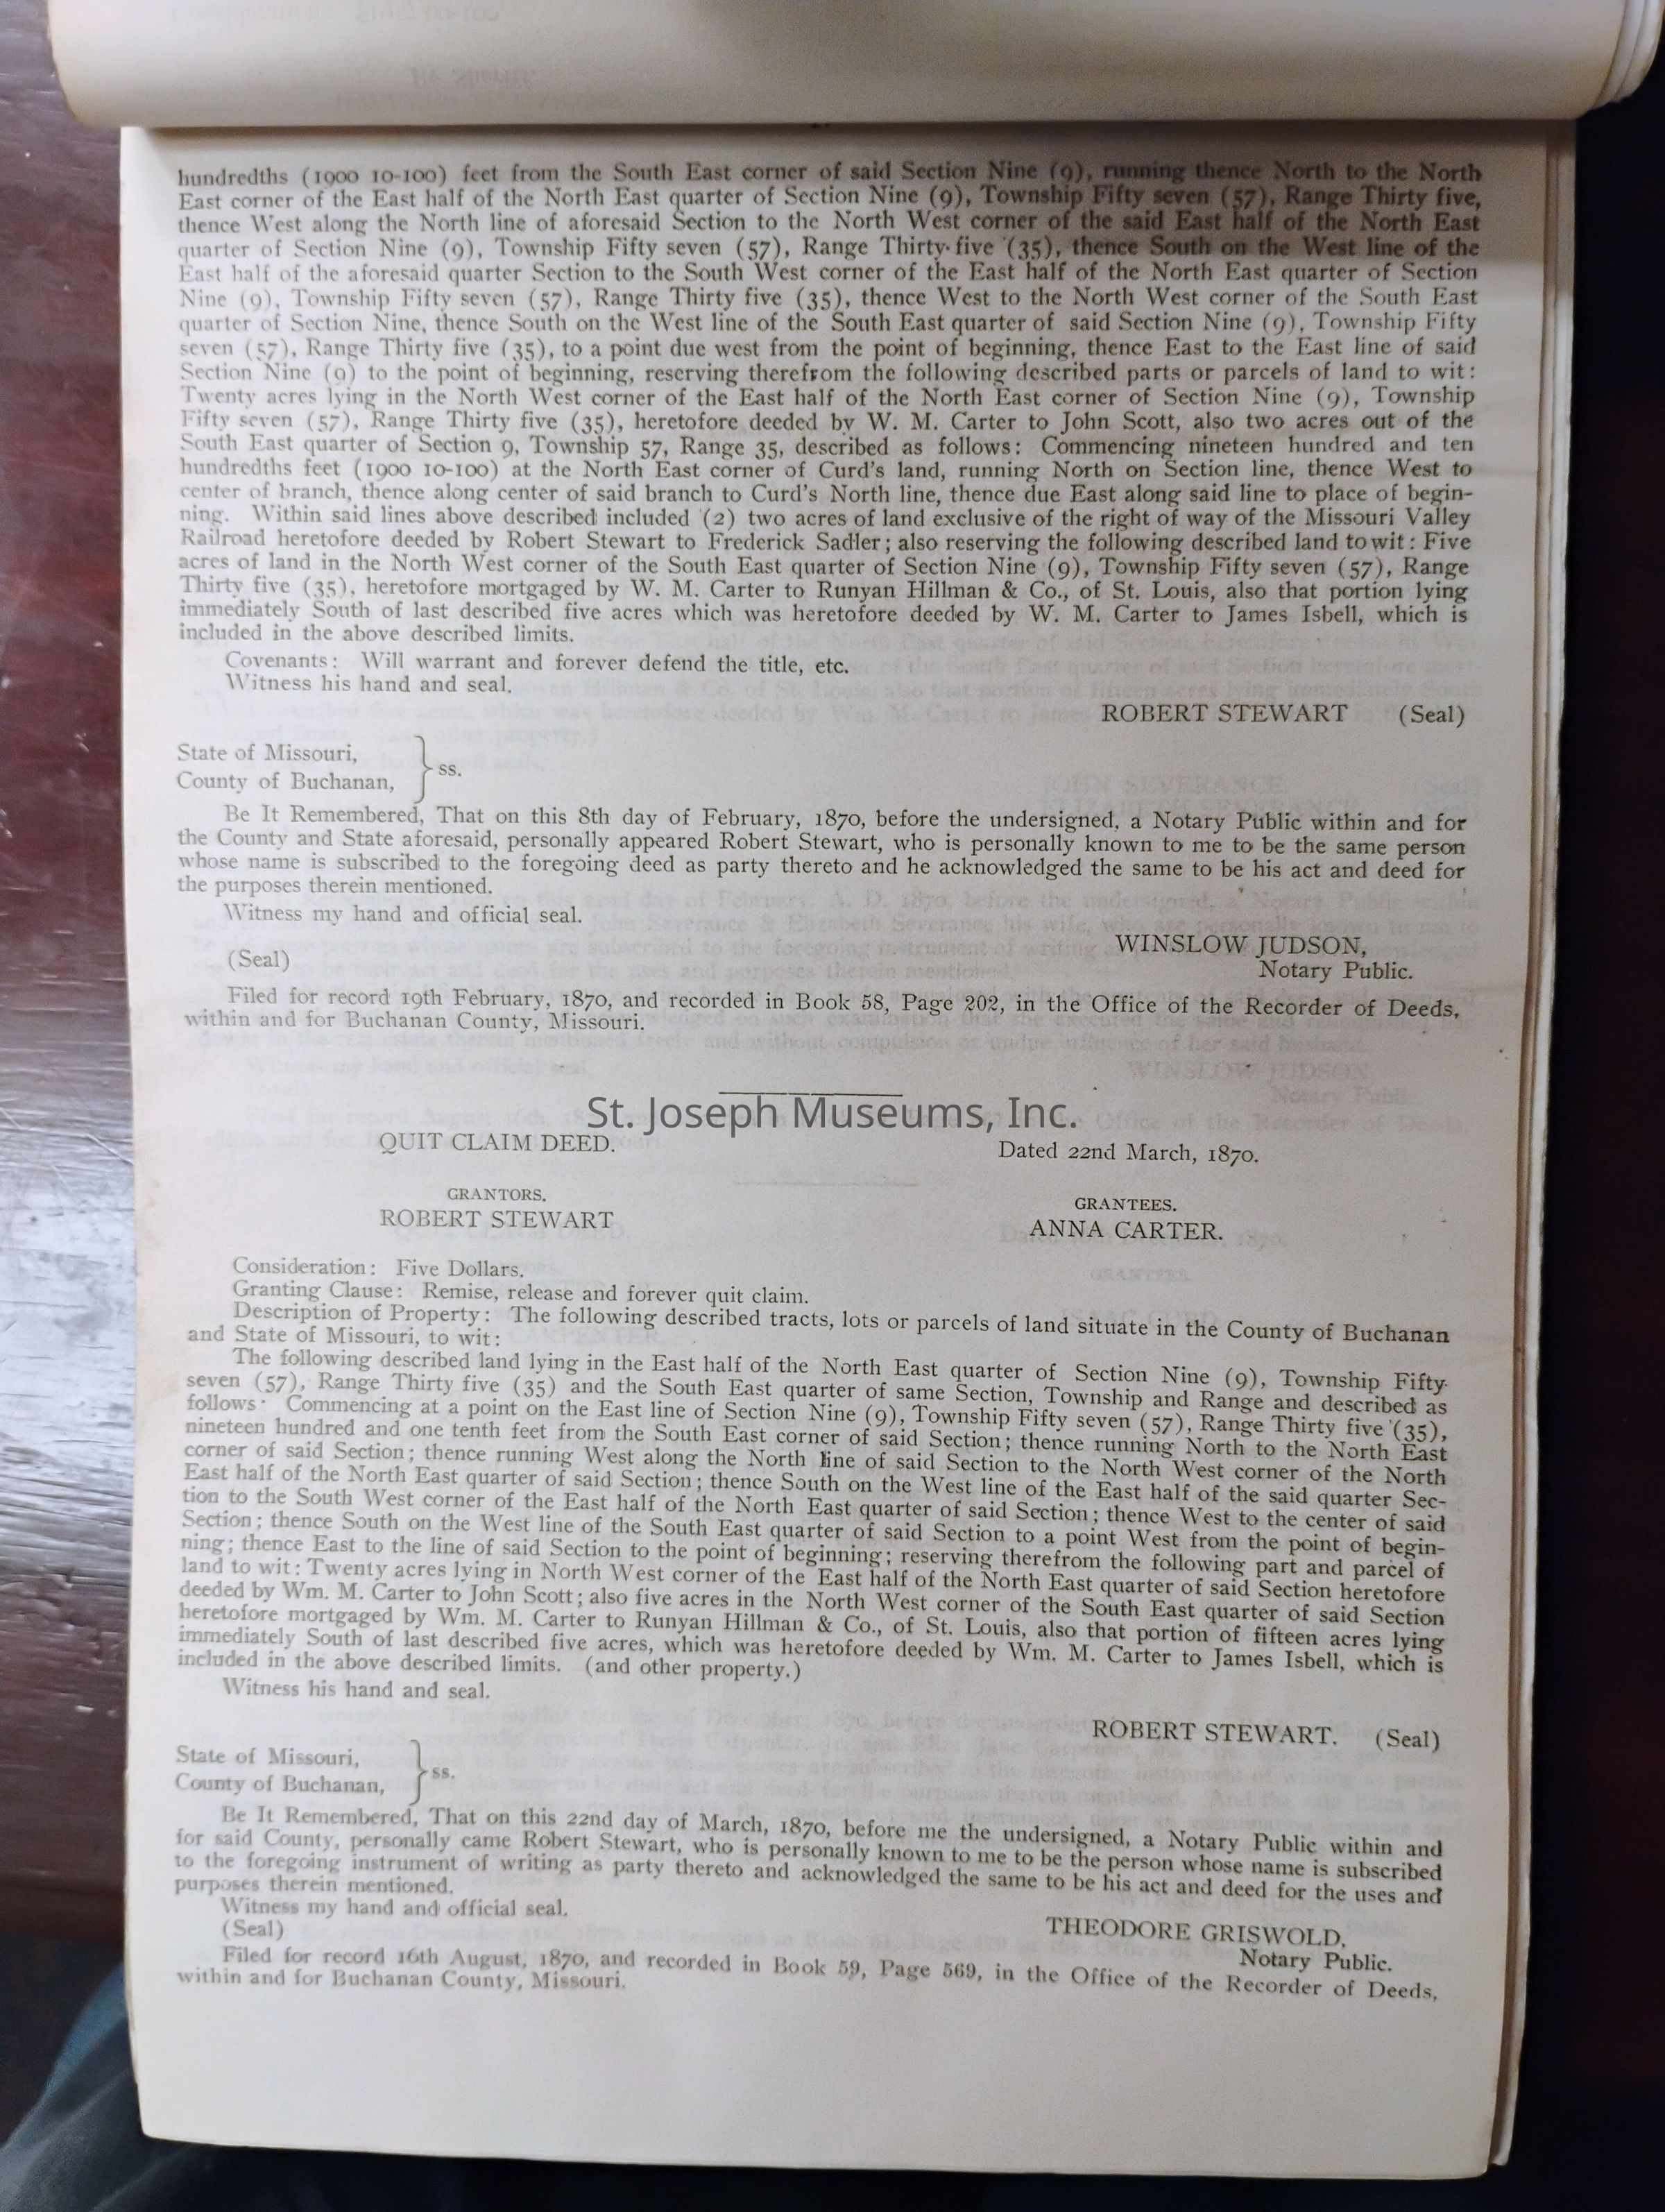 hundredths (1900 10-100) feet from the South East corner of said Section Nine (9), running thence North to the North
East corner of the East half of the North East quarter of Section Nine (9), Township Fifty seven (57), Range Thirty five,
thence West along the North line of aforesaid Section to the North West corner of the said East half of the North East
quarter of Section Nine (9), Township Fifty seven (57), Range Thirty-five (35), thence South on the West line of the
East half of the aforesaid quarter Section to the South West corner of the East half of the North East quarter of Section
Nine (9), Township Fifty seven (57), Range Thirty five (35), thence West to the North West corner of the South East
quarter of Section Nine, thence South on the West line of the South East quarter of said Section Nine (9), Township Fifty
seven (57), Range Thirty five (35), to a point due west from the point of beginning, thence East to the East line of said
Section Nine (9) to the point of beginning, reserving therefrom the following described parts or parcels of land to wit:
Twenty acres lying in the North West corner of the East half of the North East corner of Section Nine (9), Township
Fifty seven (57), Range Thirty five (35), heretofore deeded by W. M. Carter to John Scott, also two acres out of the
South East quarter of Section 9, Township 57, Range 35, described as follows: Commencing nineteen hundred and ten
hundredths feet (1900 10-100) at the North East corner of Curd's land, running North on Section line, thence West to
center of branch, thence along center of said branch to Curd's North line, thence due East along said line to place of begin-
ning. Within said lines above described included (2) two acres of land exclusive of the right of way of the Missouri Valley
Railroad heretofore deeded by Robert Stewart to Frederick Sadler; also reserving the following described land to wit: Five
acres of land in the North West corner of the South East quarter of Section Nine (9), Township Fifty seven (57), Range
Thirty five (35), heretofore mortgaged by W. M. Carter to Runyan Hillman & Co., of St. Louis, also that portion lying
immediately South of last described five acres which was heretofore deeded by W. M. Carter to James Isbell, which is
included in the above described limits.
Covenants: Will warrant and forever defend the title, etc.
Witness his hand and seal.
ROBERT STEWART (Seal)
State of Missouri,
County of Buchanan, } ss.
Be It Remembered, That on this 8th day of February, 1870, before the undersigned, a Notary Public within and for
the County and State aforesaid, personally appeared Robert Stewart, who is personally known to me to be the same person
whose name is subscribed to the foregoing deed as party thereto and he acknowledged the same to be his act and deed for
the purposes therein mentioned.
Witness my hand and official seal.
(Seal)
WINSLOW JUDSON,
Notary Public.
Filed for record 19th February, 1870, and recorded in Book 58, Page 202, in the Office of the Recorder of Deeds,
within and for Buchanan County, Missouri.
St. Joseph Museums, Inc.
QUIT CLAIM DEED. Dated 22nd March, 1870.
GRANTORS. GRANTEES.
ROBERT STEWART ANNA CARTER.
Consideration: Five Dollars.
Granting Clause: Remise, release and forever quit claim.
Description of Property: The following described tracts, lots or parcels of land situate in the County of Buchanan
and State of Missouri, to wit:
The following described land lying in the East half of the North East quarter of Section Nine (9), Township Fifty
seven (57), Range Thirty five (35) and the South East quarter of same Section, Township and Range and described as
follows: Commencing at a point on the East line of Section Nine (9), Township Fifty seven (57), Range Thirty five (35),
nineteen hundred and one tenth feet from the South East corner of said Section; thence running North to the North East
corner of said Section; thence running West along the North line of said Section to the North West corner of the North
East half of the North East quarter of said Section; thence South on the West line of the East half of the said quarter Sec-
tion to the South West corner of the East half of the North East quarter of said Section; thence West to the center of said
Section; thence South on the West line of the South East quarter of said Section to a point West from the point of begin-
ning; thence East to the line of said Section to the point of beginning; reserving therefrom the following part and parcel of
land to wit: Twenty acres lying in North West corner of the East half of the North East quarter of said Section heretofore
deeded by Wm. M. Carter to John Scott; also five acres in the North West corner of the South East quarter of said Section
heretofore mortgaged by Wm. M. Carter to Runyan Hillman & Co., of St. Louis, also that portion of fifteen acres lying
immediately South of last described five acres, which was heretofore deeded by Wm. M. Carter to James Isbell, which is
included in the above described limits. (and other property.)
Witness his hand and seal.
ROBERT STEWART. (Seal)
State of Missouri,
County of Buchanan, } ss.
Be It Remembered, That on this 22nd day of March, 1870, before me the undersigned, a Notary Public within and
for said County, personally came Robert Stewart, who is personally known to me to be the person whose name is subscribed
to the foregoing instrument of writing as party thereto and acknowledged the same to be his act and deed for the uses and
purposes therein mentioned.
Witness my hand and official seal.
(Seal)
THEODORE GRISWOLD,
Notary Public.
Filed for record 16th August, 1870, and recorded in Book 59, Page 569, in the Office of the Recorder of Deeds,
within and for Buchanan County, Missouri.